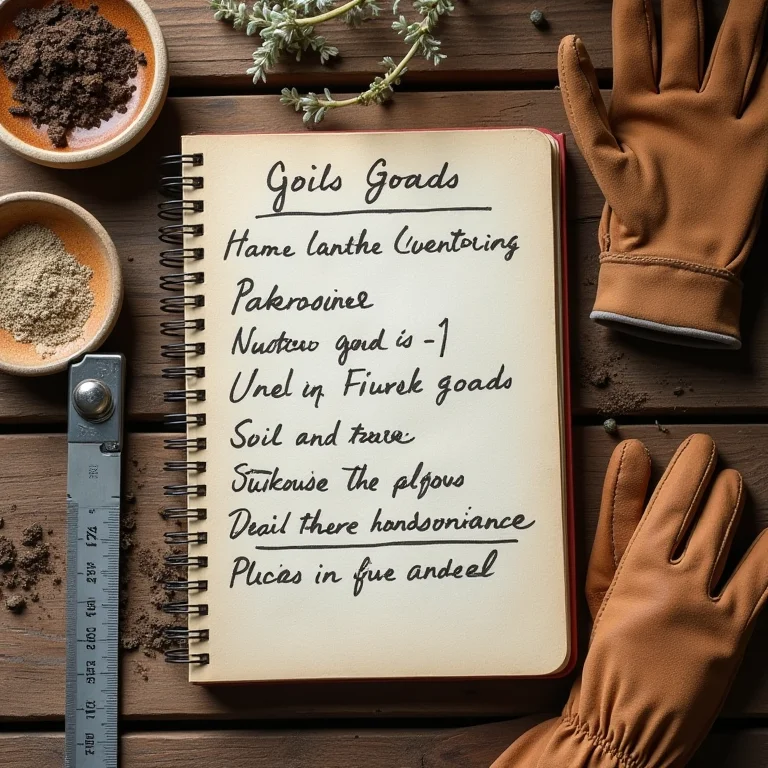 Goils Goads
Hame lanthe Cuentoring
Pakrosinee
Nustcuo goad is -1
Unel in Fiurek goads
Soil and
Suikouse the plfous
Deail there handsoniance
Plucas in fue andeel